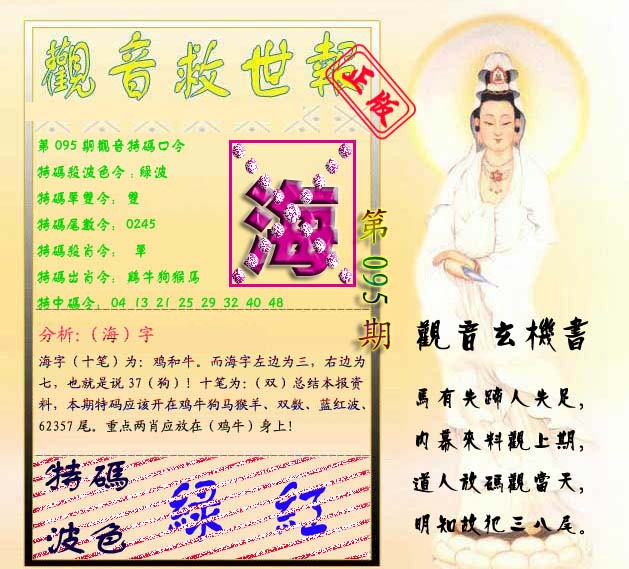 觀音救世報
正版
第095期觀音特碼口令
特碼殺波色令:綠波
特碼單雙令: 雙
特碼尾數令: 0245
特碼殺肖令: 單
特碼出肖令: 鷄牛狗猴馬
特中碼令: 04 13 21 25 29 32 40 48
海
第095期
分析:(海)字
海字(十笔)为:鸡和牛。而海字左边为三,右边为
七,也就是说37(狗)!十笔为:(双)总结本报资
料,本期特码应该开在鸡牛狗马猴羊、双数、蓝红波、
62357尾。重点两肖应放在(鸡牛)身上!
特碼
波色
綠 紅
觀音玄機書
馬有失蹄人失足,
内幕來料觀上期,
道人放碼觀當天,
明知故犯三八尾。